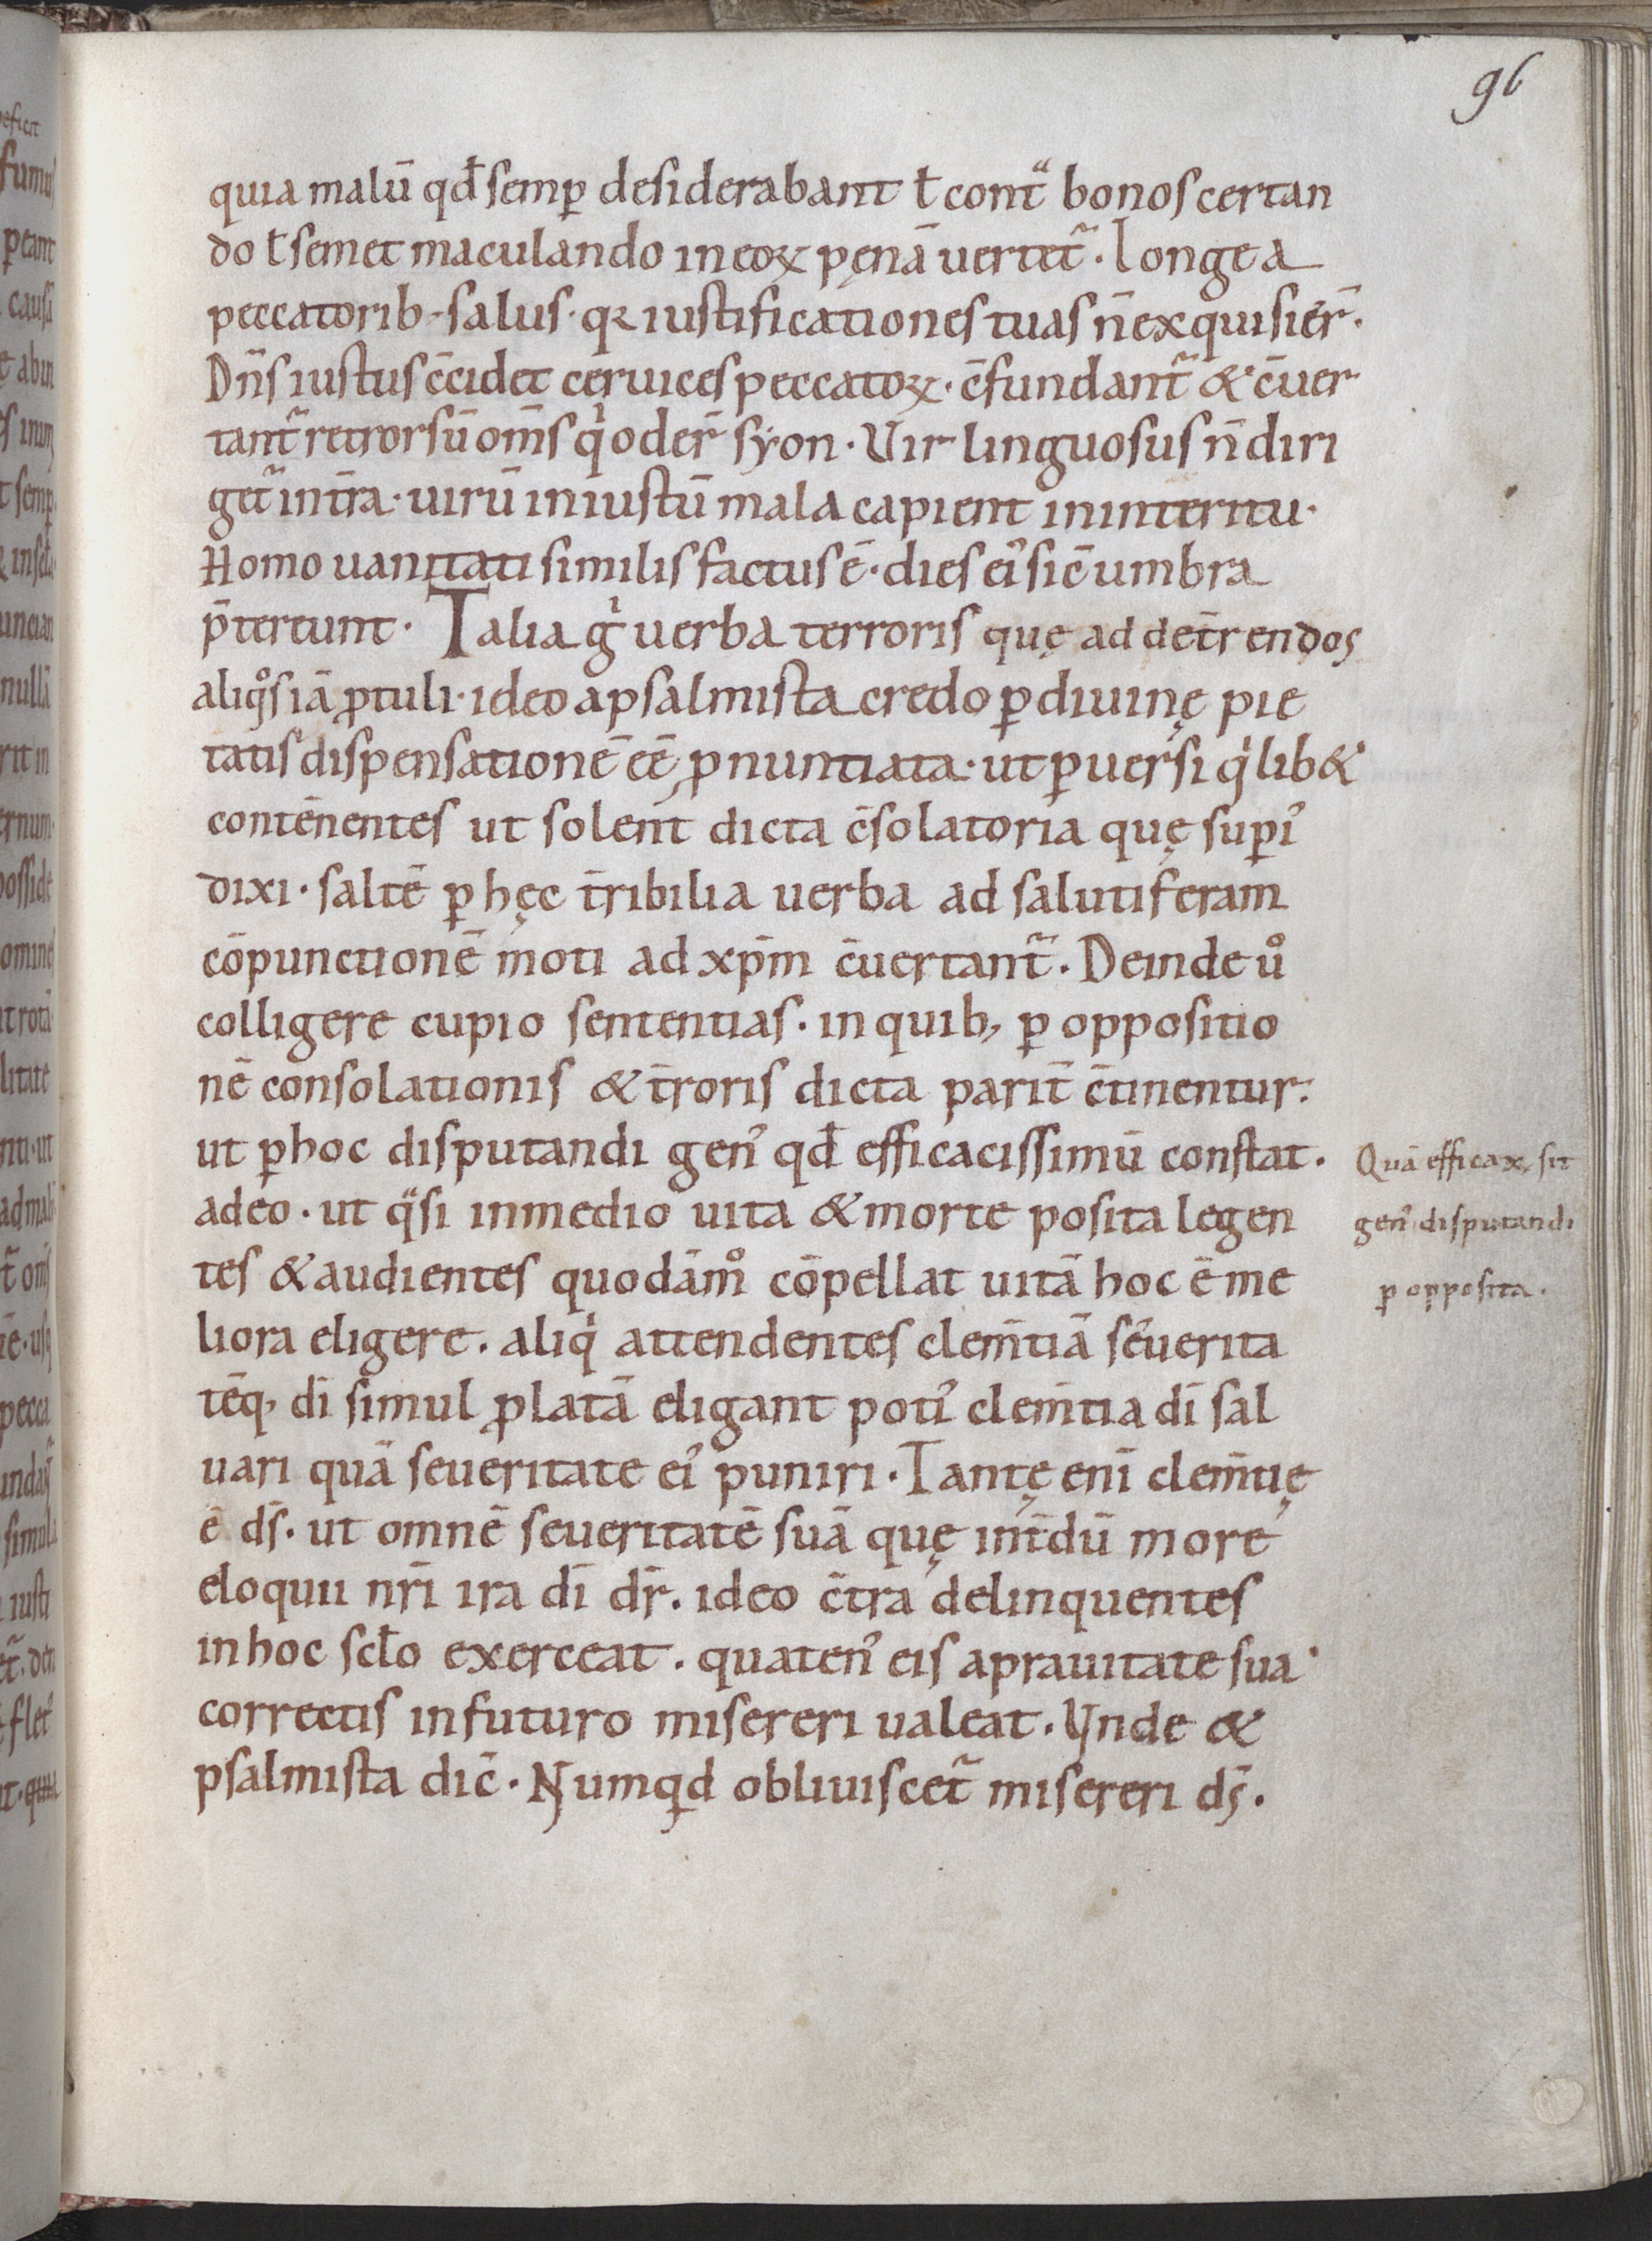 96
quia malū qđ semꝑ desiderabant ł contᵃ bonos certan
do ł semet maculando in eoꝝ pęnā uertet᷑. Longe a
peccatorib; salus. qꝛ iustificationes tuas n̄ exquisier̄.
Dn̄s iustus c̄cidet ceruices peccatoꝝ. c̄fundant᷑ & c̄uer
tant᷑ retrorsū om̄s qⁱ oder̄ syon. Vir linguosus n̄ diri
get᷑ in t̄ra. uirū iniustū mala capient in interitu.
Homo uanitati similis factus ē. dies ei᾽ sic̄ umbra
p̄tereunt. Talia gⁱ uerba terroris quę ad det̄rendos
aliqͦs iā ꝓtuli. ideo a psalmista credo ꝑ diuinę pie
tatis dispensationē eē ꝓnuntiata. ut ꝑuersi qⁱlib&
contēnentes ut solent dicta c̄solatoria quę supi᾽
dixi. saltē ꝑ hęc t̄ribilia uerba ad salutiferam
cōpunctionē moti ad xp̄m c̄uertant᷑. Deinde uͦ
colligere cupio sententias. in quib; ꝑ oppositio
nē consolationis & t̄roris dicta parit̄ c̄tinentur.
ut ꝑ hoc disputandi gen᾽ qđ efficacissimū constat.
adeo. ut qᵃsi in medio uita & morte posita legen
tes & audientes quodāmͦ cōpellat uitā hoc ē me
liora eligere. aliqⁱ attendentes clem̄tiā seuerita
tēq; dī simul ꝓlatā eligant poti᾽ clem̄tia dī sal
uari quā seueritate ei᾽ puniri. Tantę enī clem̄tię
ē ds̄. ut omnē seueritatē suā quę int̄dū more
eloquii nr̄i ira dī dr̄. ideo c̄tra delinquentes
in hoc scło exerceat. quaten᾽ eis a prauitate sua
correctis in futuro misereri ualeat. Vnde &
psalmista dic̄. Numqd obliuiscet᷑ misereri ds̄.
Quā efficax sit
gen᾽ disputandi
ꝑ opposita.